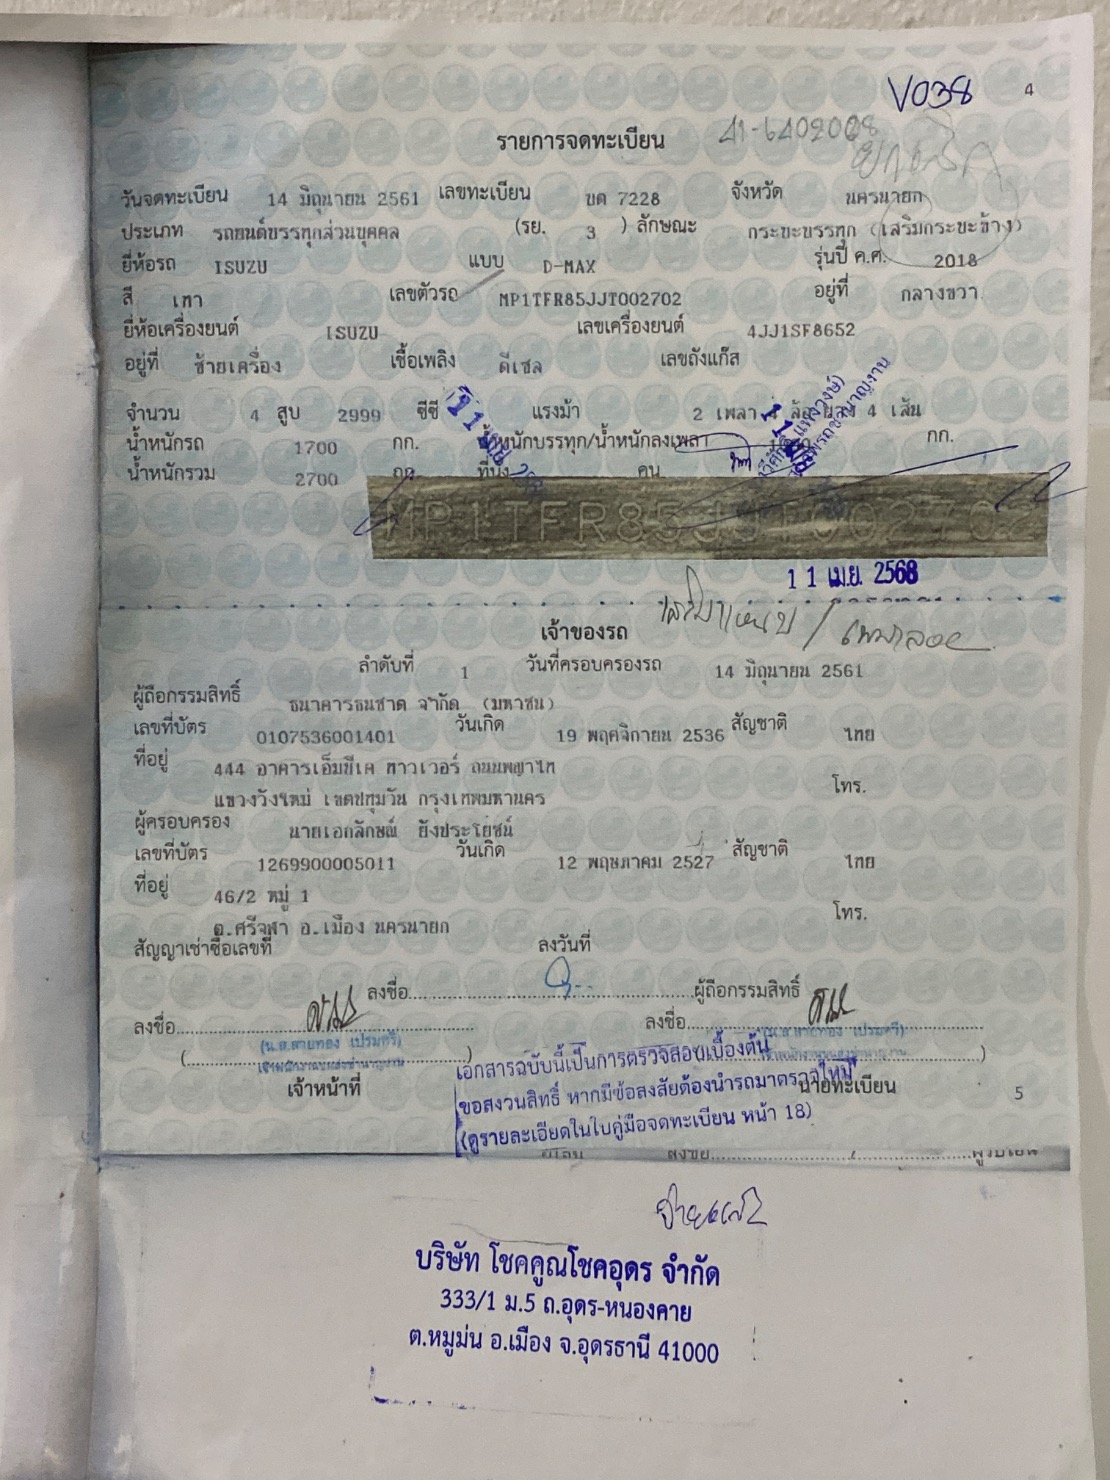 V038 4
รายการจดทะเบียน 41-6402008
วันจดทะเบียน 14 มิถุนายน 2561 เลขทะเบียน ขต 7228 จังหวัด นครนายก
ประเภท รถยนต์บรรทุกส่วนบุคคล (รย. 3 ) ลักษณะ กระบะบรรทุก (เสริมกระบะข้าง)
ยี่ห้อรถ ISUZU แบบ D-MAX รุ่นปี ค.ศ. 2018
สี เทา เลขตัวรถ MP1TFR85JJT002702 อยู่ที่ กลางขวา
ยี่ห้อเครื่องยนต์ ISUZU เลขเครื่องยนต์ 4JJ1SF8652
อยู่ที่ ซ้ายเครื่อง เชื้อเพลิง ดีเซล เลขถังแก๊ส
จำนวน 4 สูบ 2999 ซีซี แรงม้า 2 เพลา 4 ล้อ ยาง 4 เส้น
น้ำหนักรถ 1700 กก. น้ำหนักบรรทุก/น้ำหนักลงเพลา กก.
น้ำหนักรวม 2700 กก ที่นั่ง คน
MP1TFR85JJT002702
11 เม.ย. 2568
เจ้าของรถ
ลำดับที่ 1 วันที่ครอบครองรถ 14 มิถุนายน 2561
ผู้ถือกรรมสิทธิ์ ธนาคารธนชาต จำกัด (มหาชน)
เลขที่บัตร 0107536001401 วันเกิด 19 พฤศจิกายน 2536 สัญชาติ ไทย
ที่อยู่ 444 อาคารเอ็มบีเค ทาวเวอร์ ถนนพญาไท
แขวงวังใหม่ เขตปทุมวัน กรุงเทพมหานคร โทร.
ผู้ครอบครอง นายเอกลักษณ์ ยังประโยชน์
เลขที่บัตร 1269900005011 วันเกิด 12 พฤษภาคม 2527 สัญชาติ ไทย
ที่อยู่ 46/2 หมู่ 1
ต.ศรีจุฬา อ.เมือง นครนายก โทร.
สัญญาเช่าซื้อเลขที่ ลงวันที่
ลงชื่อ ผู้ถือกรรมสิทธิ์
ลงชื่อ ลงชื่อ
(น.ส.สายทอง เปรมศรี) (น.ส.สายทอง เปรมศรี)
เจ้าหน้าที่ นายทะเบียน
เอกสารฉบับนี้เป็นการตรวจสอบเบื้องต้น
ขอสงวนสิทธิ์ หากมีข้อสงสัยต้องนำรถมาตรวจใหม่
(ดูรายละเอียดในใบคู่มือจดทะเบียน หน้า 18)
5
บริษัท โชคคูณโชคอุดร จำกัด
333/1 ม.5 ถ.อุดร-หนองคาย
ต.หมูม่น อ.เมือง จ.อุดรธานี 41000